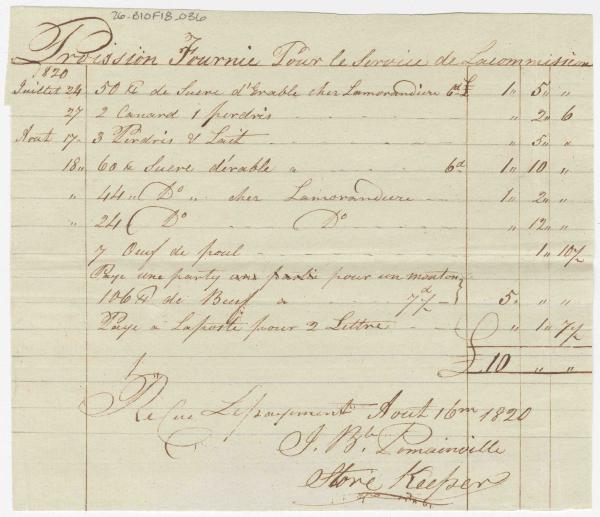 26-B10F18-036
Proission Fournie Pour le Service de Lacommission
1820
Juillet 24 50 ℔ de Sucre d'Erable cher Lamorandiere 6d £ 1 " 5 " "
27 2 Canard 1 perdris " 2 " 6
Aout 17 " 3 Perdris & Lait " 5 " "
18 " 60 ℔ Sucre dérable a 6d 1 " 10 "
" 44 " Do " cher Lamorandiere 1 " 2 " "
" 24 Do Do " 12 " "
7 Oeuf de poul " 1 " 10½
Paye une party pour un mouton
106 ℔ de Beuf a 7½d 5 " " "
Paye a Laposte pour 2 Lettre " 1 " 7½
£ 10 " "
Re Cue Lepayement Aout 16m 1820
J. Bte Pomainville
Store Keeper